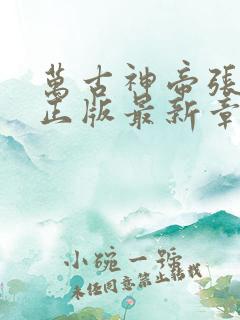 萬古神帝張
正版最新章
小碗一號
未經同意禁止轉載